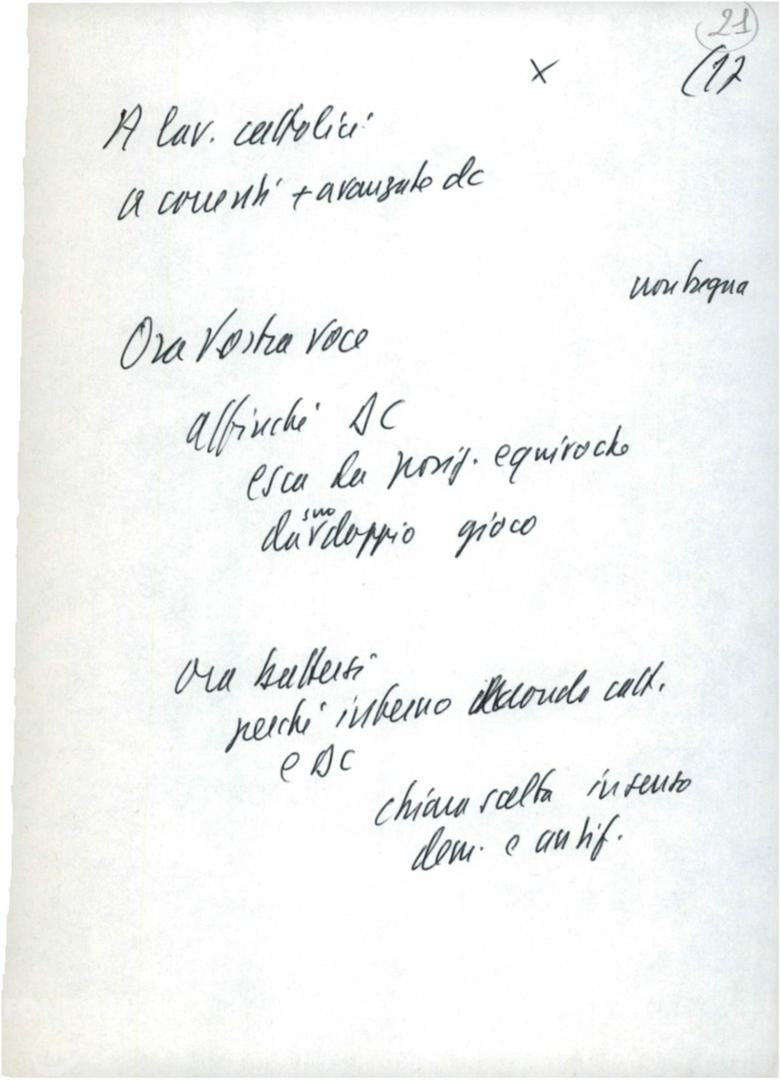 21
(17
x
A lav. cattolici
a correnti + avanzate dc
non tregua
Ora Vostra voce
affinché DC
esca da posiz. equivoche
da suo doppio gioco
ora battersi
perché interno mondo catt.
e DC
chiara scelta in senso
dem. e antif.